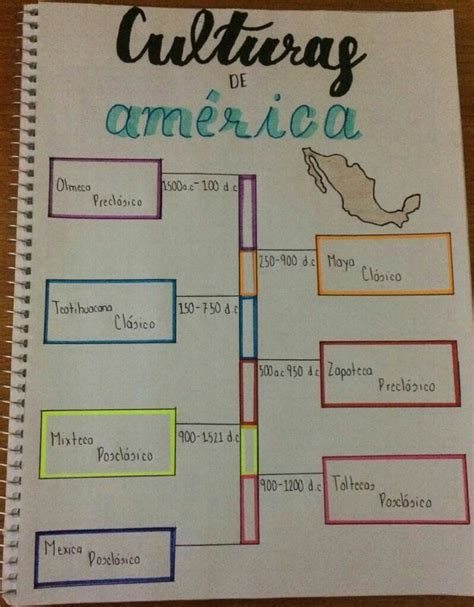 Culturas
DE
américa
Olmeca
Preclásico
1500a.c-100 d.c
250-900 d.c
Maya
Clásico
Teotihuacana
Clásico
150-750 d.c
500a.c 950 d.c
Zapoteca
Preclásico
Mixteca
Posclásico
900-1521 d.c
900-1200 d.c
Toltecas
Posclásico
Mexica
Posclásico